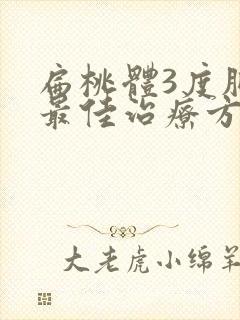 扁桃體3度
最佳治療方
大老虎小绵羊